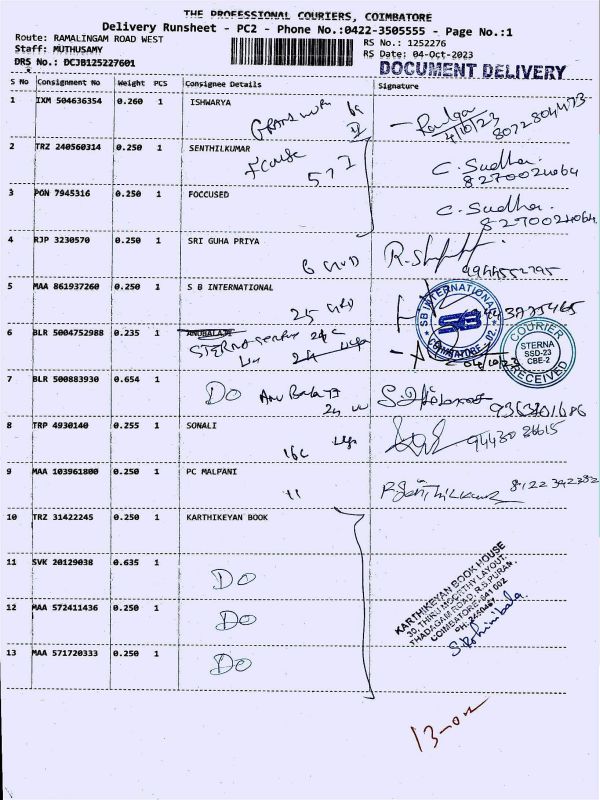 THE PROFESSIONAL COURIERS, COIMBATORE
Delivery Runsheet - PC2 - Phone No.:0422-3505555 - Page No.:1
Route: RAMALINGAM ROAD WEST
RS No.: 1252276
Staff: MUTHUSAMY
RS Date: 04-Oct-2023
DRS No.: DCJB125227601
DOCUMENT DELIVERY
S No Consignment No Weight PCS Consignee Details Signature
1 IXM 504636354 0.260 1 ISHWARYA
4/10/23 8072804473
2 TRZ 240560314 0.250 1 SENTHILKUMAR
C. Sudha.
8270024064
3 PON 7945316 0.250 1 FOCCUSED
C. Sudha.
8270024064
4 RJP 3230570 0.250 1 SRI GUHA PRIYA
9944552795
5 MAA 861937260 0.250 1 S B INTERNATIONAL
SB INTERNATIONAL
SB
COIMBATORE - 02.
6 BLR 5004752988 0.235 1 ANUBALAJI
COURIER
STERNA
SSD-23
CBE-2
RECEIVED
7 BLR 500883930 0.654 1
DO Anu Balaji
9363701686
8 TRP 4930140 0.255 1 SONALI
9443036615
9 MAA 103961800 0.250 1 PC MALPANI
11
R. Senthilkumar 8122342332
10 TRZ 31422245 0.250 1 KARTHIKEYAN BOOK
11 SVK 20129038 0.635 1
DO
12 MAA 572411436 0.250 1
DO
13 MAA 571720333 0.250 1
DO
KARTHIKEYAN BOOK HOUSE
30, THIRU MOORTHY LAYOUT,
THADAGAM ROAD, R.S.PURAM,
COIMBATORE-641 002